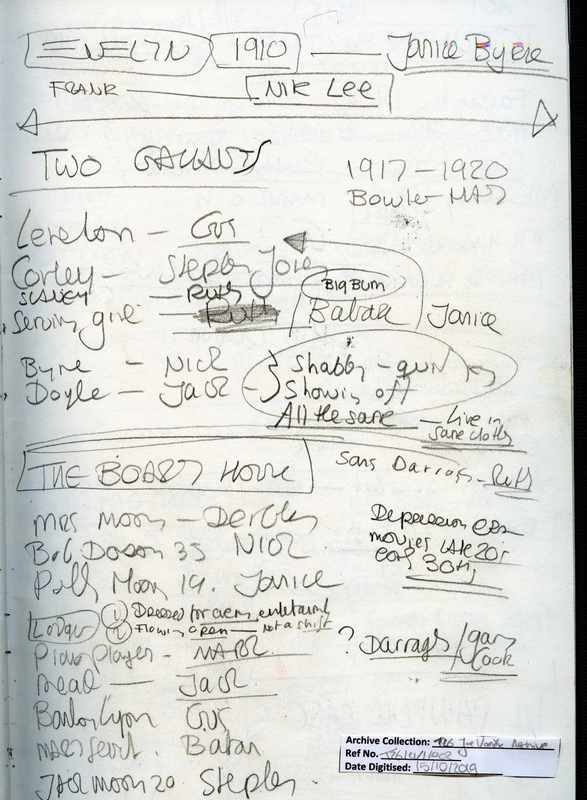 EVELYN 1910 — Janice Byrne
FRANK — Nik Lee
TWO GALLANTS
1917 – 1920
Bowler HATS
Lenehan – Gus
Corley – Stephen Jones
SLAVEY — RUTH
Serving girl — Ruth
Big Bum
Babette Janice
Byrne – Nick
Doyle – Jack
Shabby – gun
Showing off
All the same — Live in
same clothes
THE BOARD HOUSE
Sons Darragh – Ruth
Mrs Moon – Derbla
Bob Doran 35 Nick
Polly Moon 19. Janice
Depression era
movies late 20s
early 30s
Lodger
① Dressed for evening entertaining
② Flowing open — not a shift
Piano Player – MARK
Meal — Jack
? Darragh / Gary
Cook
Bantom Lyon Gus
Jack Moon 20 Stephen
Archive Collection:
Ref No.
Date Digitised: 15/10/2019